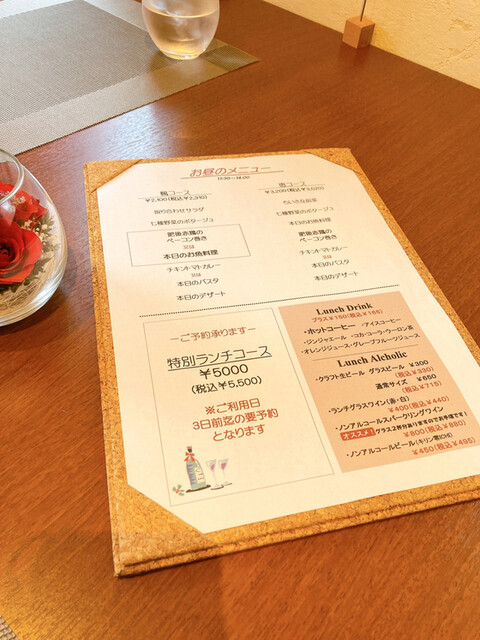 お昼のメニュー
11:30～14:00
楓コース
¥2,100(税込¥2,310)
取り合わせサラダ
七種野菜のポタージュ
肥後赤鶏の
ベーコン巻き
又は
本日のお魚料理
チキントマトカレー
又は
本日のパスタ
本日のデザート
¥3,200(税込¥3,520)
ちいさな前菜
七種野菜のポタージュ
本日のお魚料理
肥後赤鶏の
ベーコン巻き
チキントマトカレー
又は
本日のパスタ
本日のデザート
ーご予約承りますー
特別ランチコース
¥5000
(税込¥5,500)
※ご利用日
3日前迄の要予約
となります
Lunch Drink
プラス¥150(税込¥165)
・ホットコーヒー ・アイスコーヒー
・ジンジャエール・コカ・コーラ・ウーロン茶
・オレンジジュース・グレープフルーツジュース
Lunch Alcholic
・クラフト生ビール グラスビール ¥300
(税込¥330)
通常サイズ ¥650
(税込¥715)
・ランチグラスワイン(赤・白)
¥400(税込¥440)
・ノンアルコールスパークリングワイン
オススメ！グラス2杯分ありますのでお手頃です！
¥800(税込¥880)
・ノンアルコールビール(キリン零ICHI)
¥450(税込¥495)